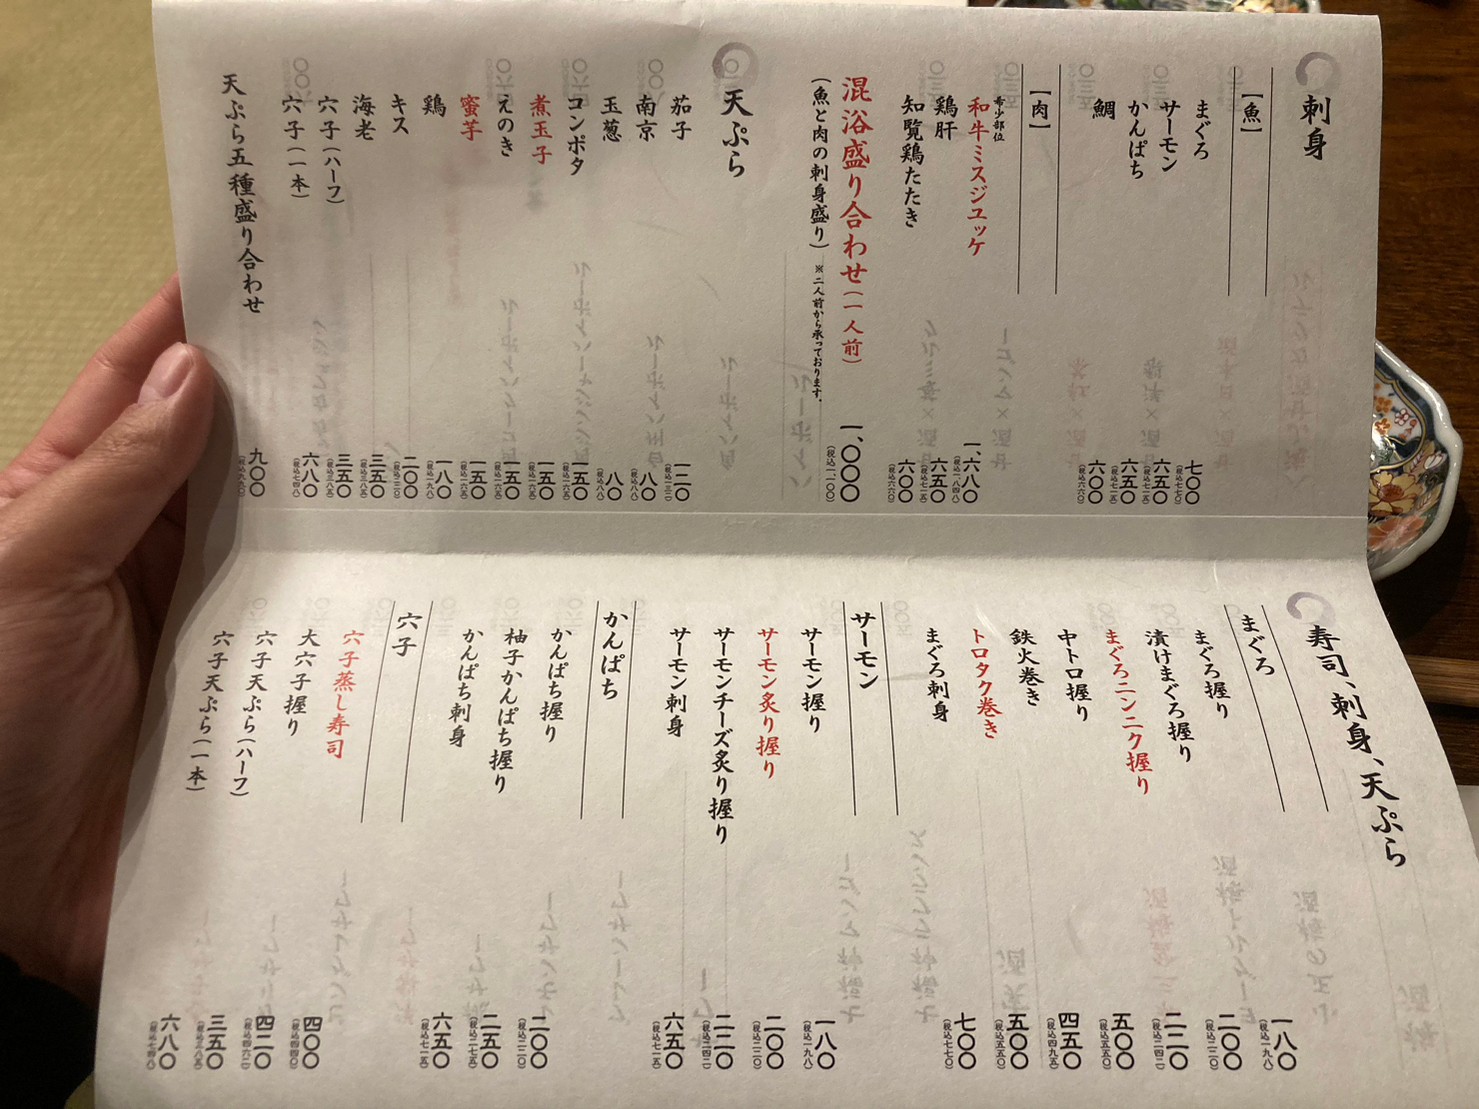 刺身
【魚】
まぐろ 七〇〇(税込七七〇)
サーモン 六五〇(税込七一五)
かんぱち 六五〇(税込七一五)
鯛 六〇〇(税込六六〇)
【肉】
希少部位
和牛ミスジユッケ 一、六八〇(税込一、八四八)
鶏肝 六五〇(税込七一五)
知覧鶏たたき 六〇〇(税込六六〇)
混浴盛り合わせ(一人前) 一、〇〇〇(税込一、一〇〇)
(魚と肉の刺身盛り) ※二人前から承っております。
天ぷら
茄子 一二〇(税込一三二)
南京 八〇(税込八八)
玉葱 八〇(税込八八)
コンポタ 一五〇(税込一六五)
煮玉子 一五〇(税込一六五)
えのき 一五〇(税込一六五)
蜜芋 一五〇(税込一六五)
鶏 一八〇(税込一九八)
キス 二〇〇(税込二二〇)
海老 三五〇(税込三八五)
穴子(ハーフ) 三五〇(税込三八五)
穴子(一本) 六八〇(税込七四八)
天ぷら五種盛り合わせ 九〇〇(税込九九〇)
寿司、刺身、天ぷら
まぐろ
まぐろ握り 一八〇(税込一九八)
漬けまぐろ握り 二〇〇(税込二二〇)
まぐろニンニク握り 二二〇(税込二四二)
中トロ握り 五〇〇(税込五五〇)
鉄火巻き 四五〇(税込四九五)
トロタク巻き 五〇〇(税込五五〇)
まぐろ刺身 七〇〇(税込七七〇)
サーモン
サーモン握り 一八〇(税込一九八)
サーモン炙り握り 二〇〇(税込二二〇)
サーモンチーズ炙り握り 二二〇(税込二四二)
サーモン刺身 六五〇(税込七一五)
かんぱち
かんぱち握り 二〇〇(税込二二〇)
柚子かんぱち握り 二五〇(税込二七五)
かんぱち刺身 六五〇(税込七一五)
穴子
穴子蒸し寿司 四〇〇(税込四四〇)
大穴子握り 四二〇(税込四六二)
穴子天ぷら(ハーフ) 三五〇(税込三八五)
穴子天ぷら(一本) 六八〇(税込七四八)